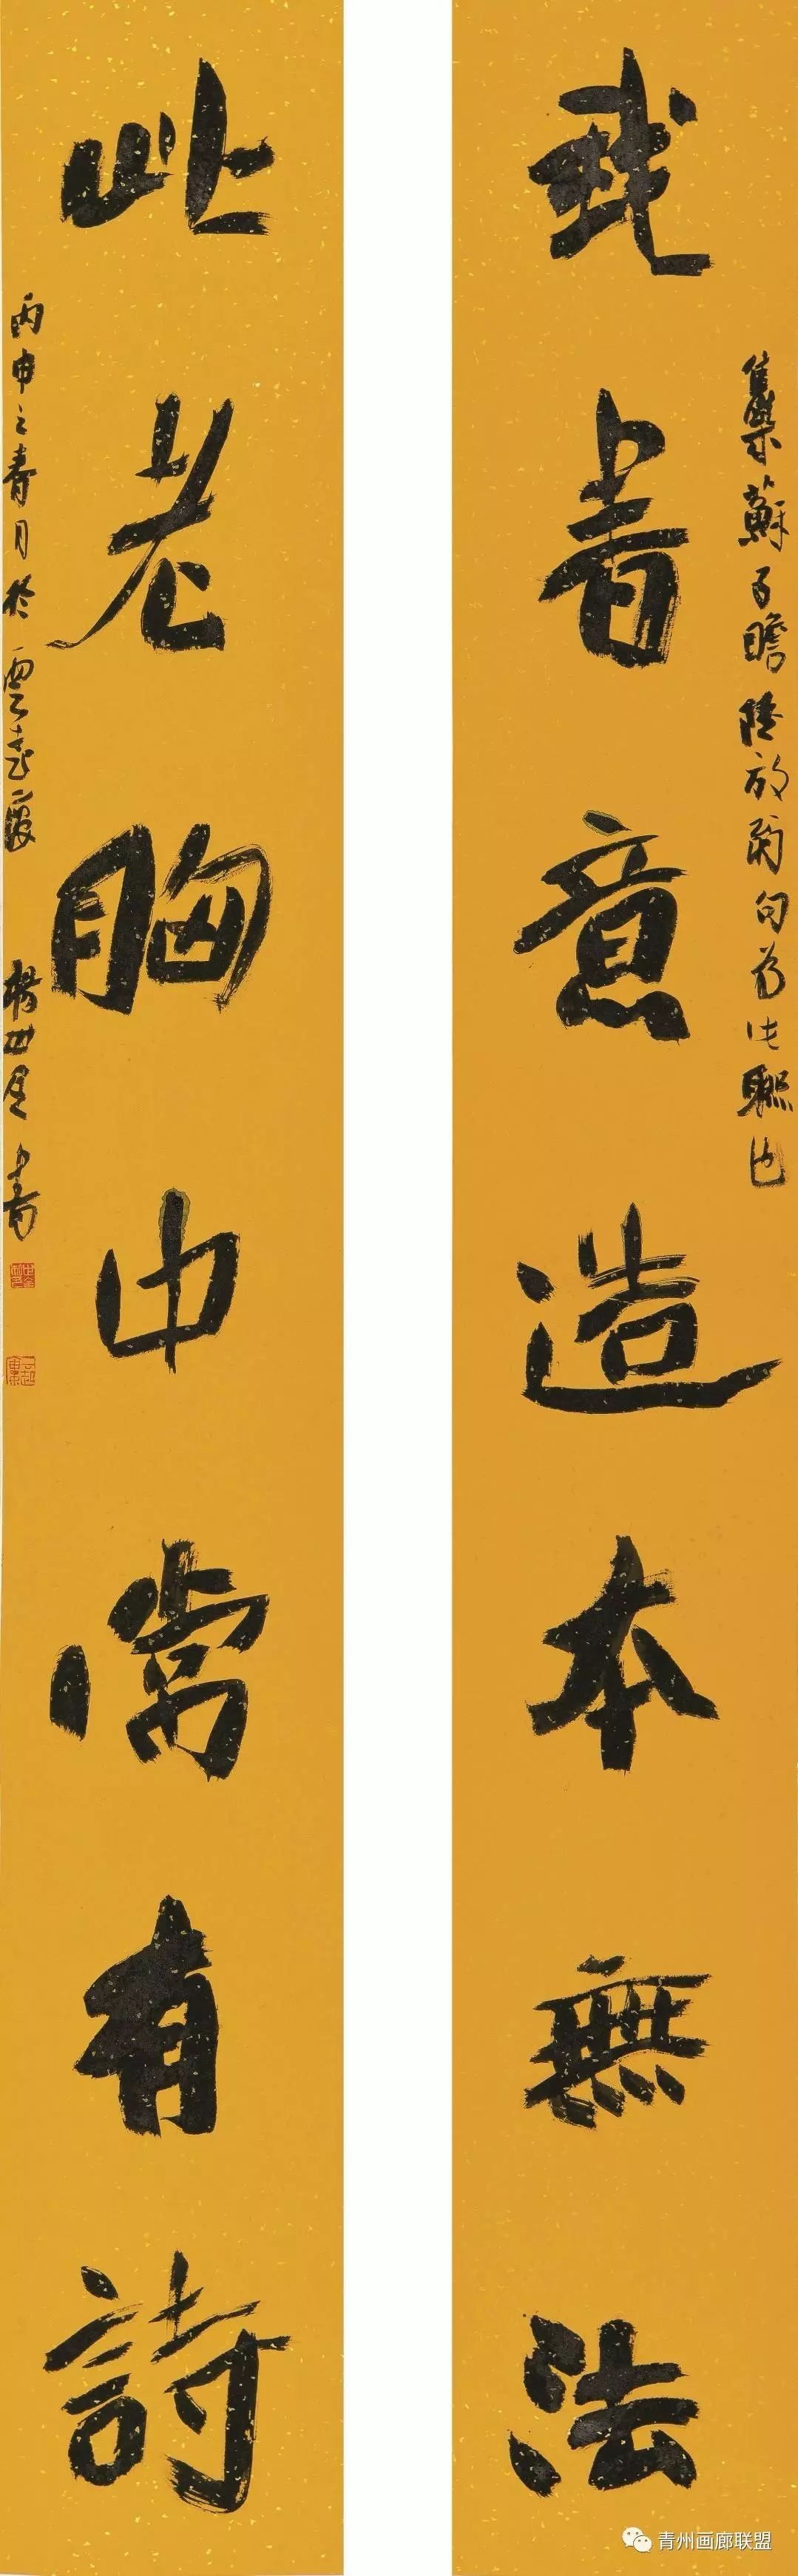 我書意造本無法
集蘇子瞻陸放翁句為此聯也
此老胸中常有詩
丙申之春月於雲起
書
青州画廊联盟